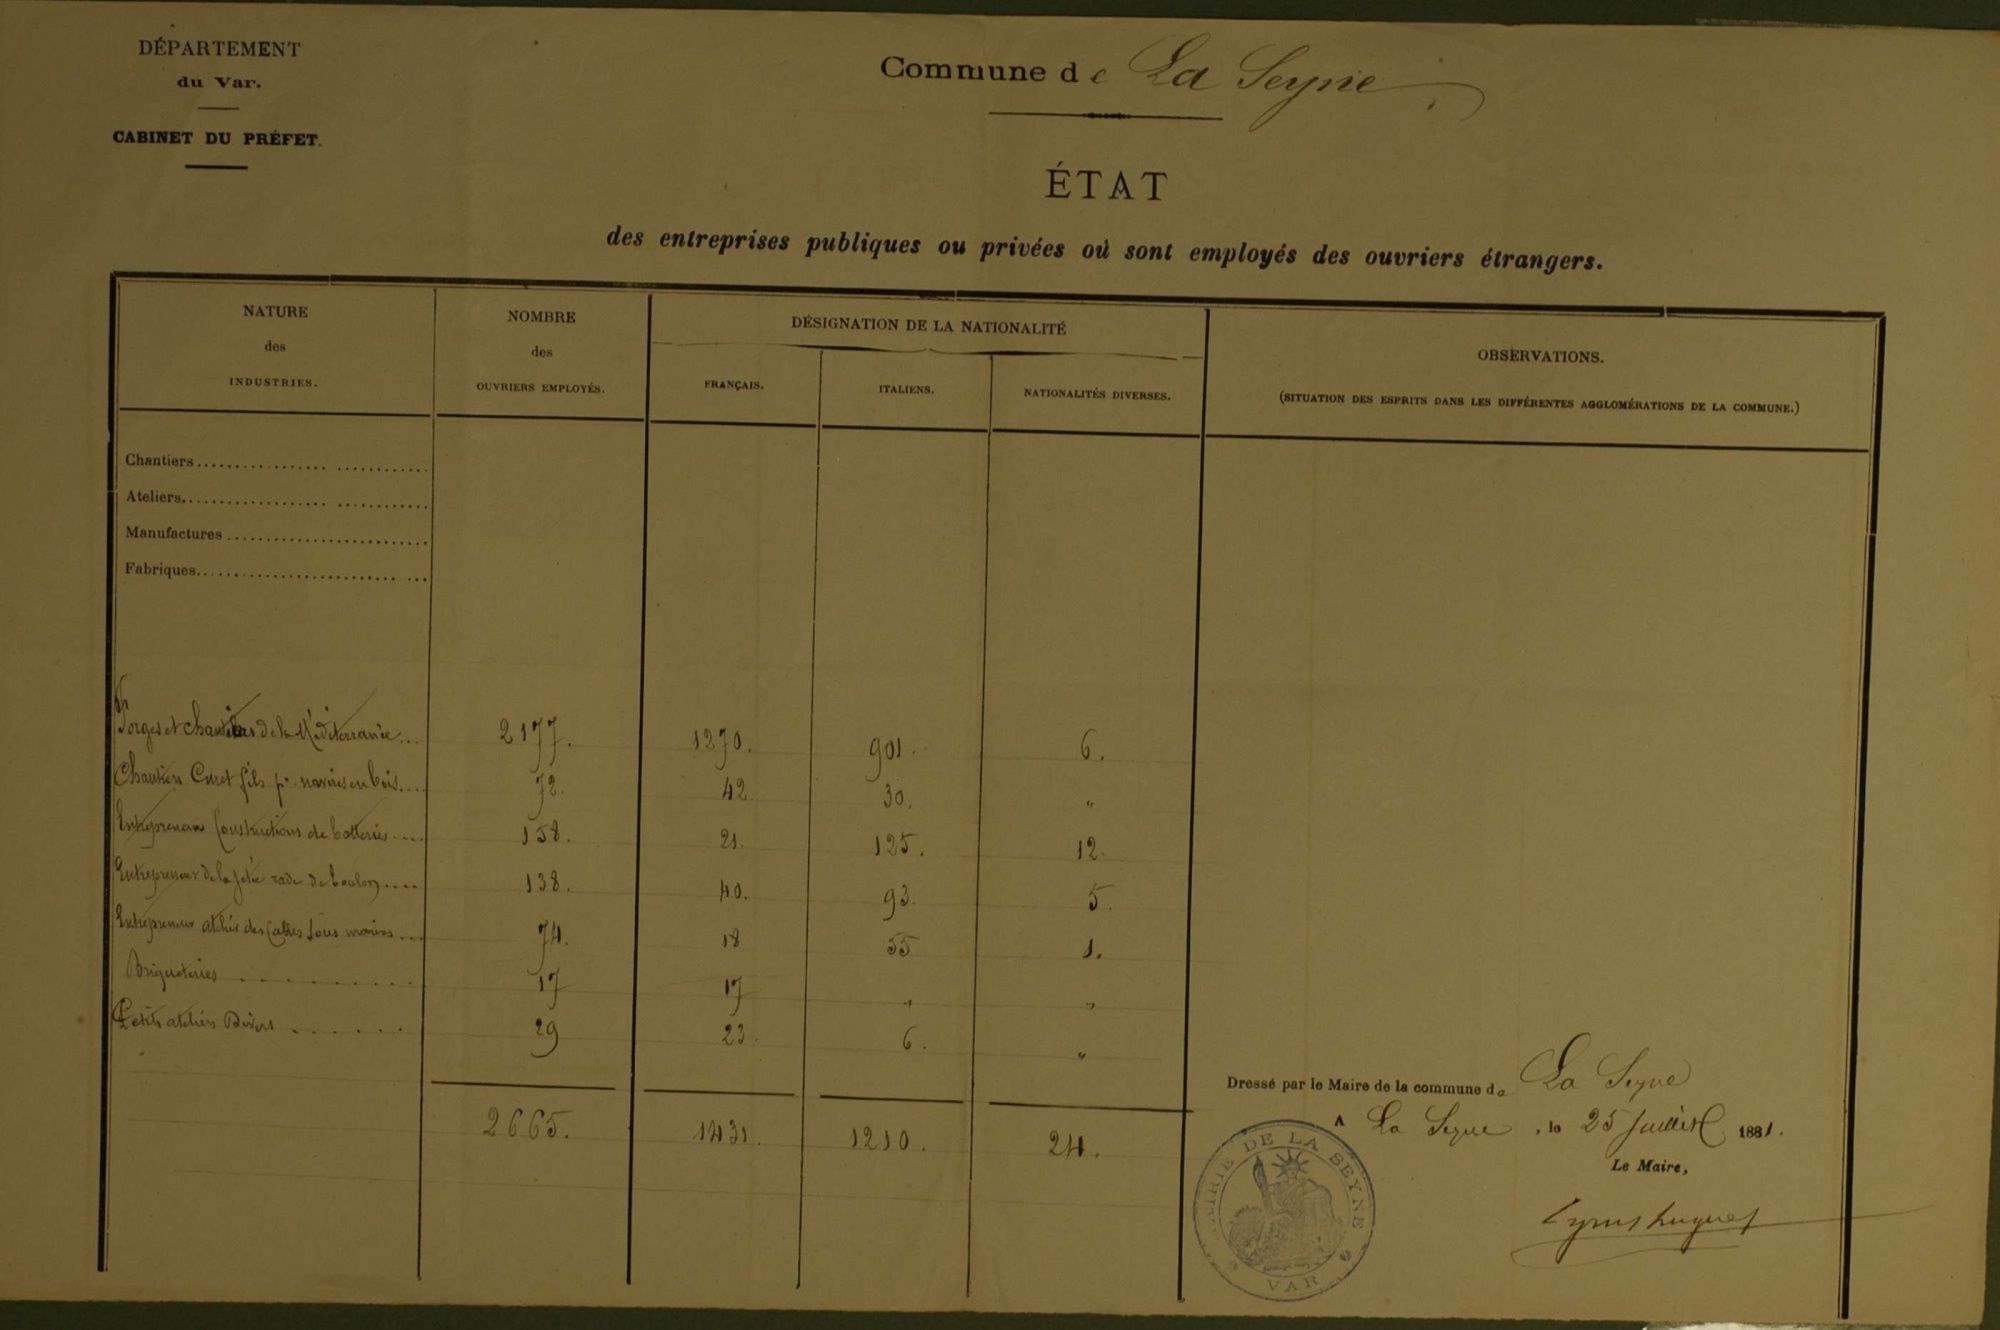 DÉPARTEMENT
du Var.
CABINET DU PRÉFET.
Commune de La Seyne
ÉTAT
des entreprises publiques ou privées où sont employés des ouvriers étrangers.
NATURE des INDUSTRIES.
NOMBRE des OUVRIERS EMPLOYÉS.
DÉSIGNATION DE LA NATIONALITÉ
FRANÇAIS.
ITALIENS.
NATIONALITÉS DIVERSES.
OBSERVATIONS.
(SITUATION DES ESPRITS DANS LES DIFFÉRENTES AGGLOMÉRATIONS DE LA COMMUNE.)
Chantiers
Ateliers
Manufactures
Fabriques
Forges et chantiers de la Méditerranée... 2177. 1270. 901. 6.
Chantiers Curet fils pr. navires en bois.... 72. 42. 30. "
Entrepreneur Constructions de batteries.... 158. 21. 125. 12.
Entrepreneur de la jetée rade de Toulon.... 138. 40. 93. 5.
Entrepreneur atelier des Cables sous marins... 74. 18 55 1.
Briqueteries 17 17 " "
Petits ateliers Divers 29 23. 6. "
2665. 1431. 1210. 24.
Dressé par le Maire de la commune de La Seyne
A La Seyne, le 25 Juillet 1881.
Le Maire,
Cyrus hugues
MAIRIE DE LA SEYNE
VAR